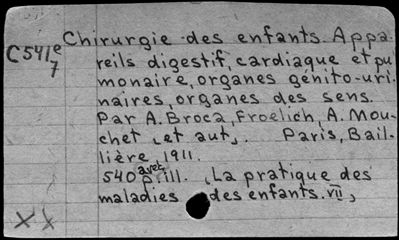 Chirurgie des enfants. Appa-
C541e reils digestif, cardiaque et pul
7 monaire, organes génito-uri-
naires, organes des sens.
Par A. Broca, Froelich, A. Mou-
chet [et aut]. Paris, Bail-
lière, 1911.
540 p. avec ill. (La pratique des
maladies des enfants. VII)
XX